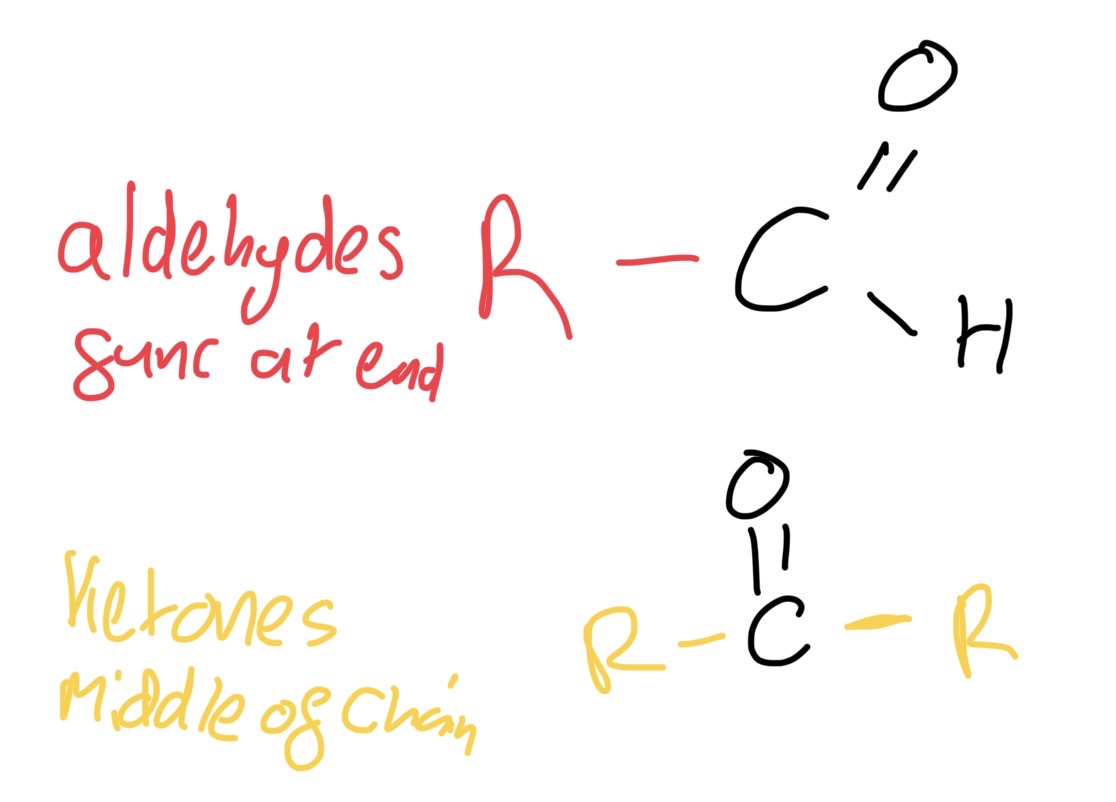 O
aldehydes R - C
H
func at end
O
Ketones
R - C - R
Middle of Chain